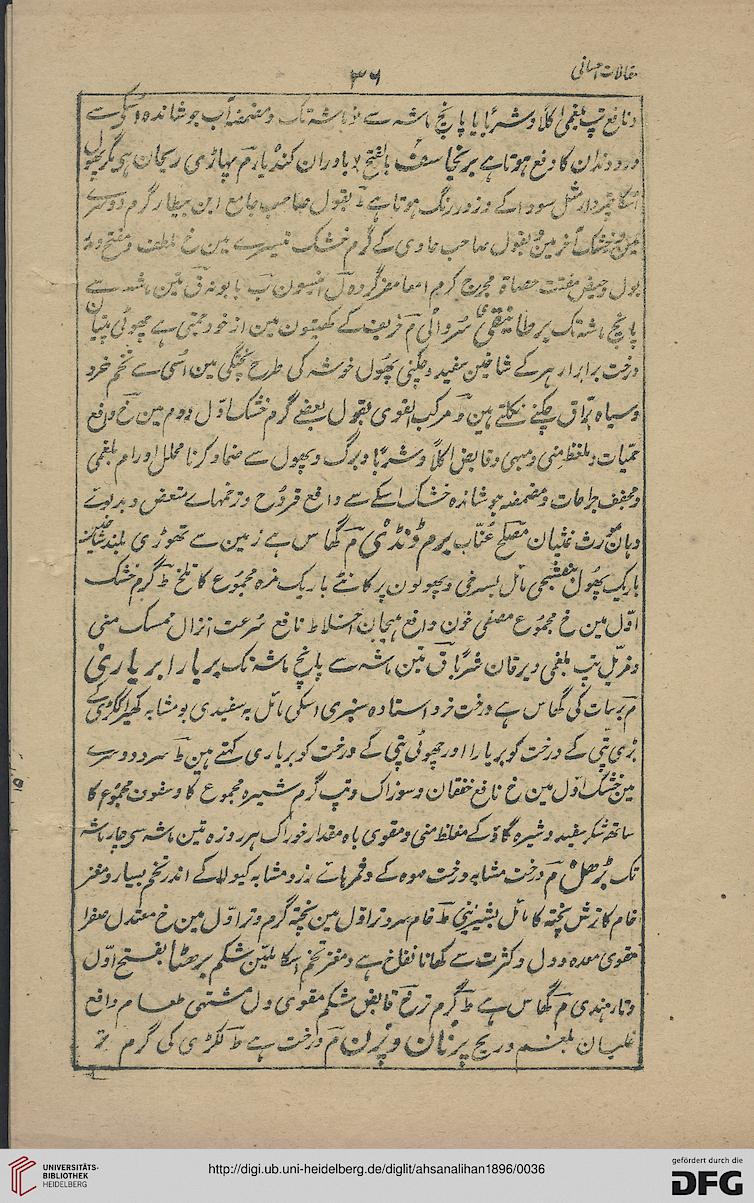 مقالات احسانی
۳۶
ونافع تپ بلغمی اکلاً وشرباً یا پانچ ماشہ سے نو ماشہ تک ومضمضہ آب جوشاندہ اسکی سے
درد دندان کا دفع ہوتا ہے برنجاسف بالفتح بلاوران کنڈیارم پہاڑی ریحان ہے مگر پھول
اسکا چتردار مثل سودا کے وزرد رنگ ہوتا ہے ط بقول صاحب جامع ابن بیطار گرم دوسرے
مین خشک آخر مین وبقول صاحب حاوی کے گرم خشک تیسرے مین خ ملطف ومفتح ومدر
بول وحیض مفتت حصاة مخرج کرم امعا مضر گردہ ل انیسون ب بابونہ ق تین ماشہ سے
پانچ ماشہ تک سروالی م خریف کے کھیتون مین از خود جمتی ہے چھوٹی پتیان
درخت برابر ارہر کے شاخین سفید وچکنی پھول خوشہ کی طرح پختگی مین اسی سے تخم خرد
وسیاہ براق چکنے نکلتے ہین ط مرکب القوی بقول بعضے گرم خشک اول دوم مین خ دافع
حمیات ومغلظ منی ومبہی وقابض اکلاً وشرباً وبرگ وپھول سے ضماد کرنا محلل اورام بلغمی
ومجفف جراحات ومضمضہ جوشاندہ خشک اسکے سے دافع قروح وزخمہاے متعفن وبدبوے
دہان مورث غثیان مصلح عناب برم ڈنڈی م گھاس ہے زمین سے تھوڑی بلند شاخین
باریک پھول بنفشجی مائل بسرخی وپھولون پر کانٹے باریک مزہ مجموع کا تلخ ط گرم خشک
اول مین خ مجموع مصفی خون دافع ہیجان اخلاط نافع سرعت انزال ممسک منی
ومزیل تپ بلغمی ویرقان شرباً ق تین ماشہ سے پانچ ماشہ تک بریارا بریاری
م برسات کی گھاس ہے درخت خرد استادہ سبزی اسکی مائل بہ سفیدی بو مشابہ کھیرا ککڑی کے
بڑی پتی کے درخت کو بریارا اور چھوٹی پتی کے درخت کو بریاری کہتے ہین ط سرد دوسرے
مین خشک اول مین خ نافع خفقان وسوزاک وتپ گرم شیرہ مجموع کا وسفوف مجموع کا
ساتھ شکر سفید وشیرہ گاؤ کے مغلظ منی ومقوی باہ مقدار خوراک ہر روزہ تین ماشہ سی چار ماشہ
تک بڑھل م درخت مشابہ درخت مہوہ کے وثمرہاے زرد مشابہ کیولا کے اندر تخم بسیار ومغز
خام کا ترش پختہ کا مائل بشیرینی ط خام سرد وتر اول مین پختہ گرم وتر اول مین خ معتدل صفرا
مقوی معدہ ودل وکثرت سے کھانا نفاخ ہے ومغز تخم اسکا ملین شکم برھٹا بفتح اول
وتار ہندی م گھاس ہے ط گرم تر خ قابض شکم مقوی دل مشتہی طعام دافع
غلیان بلغم وریح پرنان وپرن م درخت ہے ط لکڑی کی گرم تر
UNIVERSITÄTS-
BIBLIOTHEK
HEIDELBERG
http://digi.ub.uni-heidelberg.de/diglit/ahsanalihan1896/0036
gefördert durch die
DFG